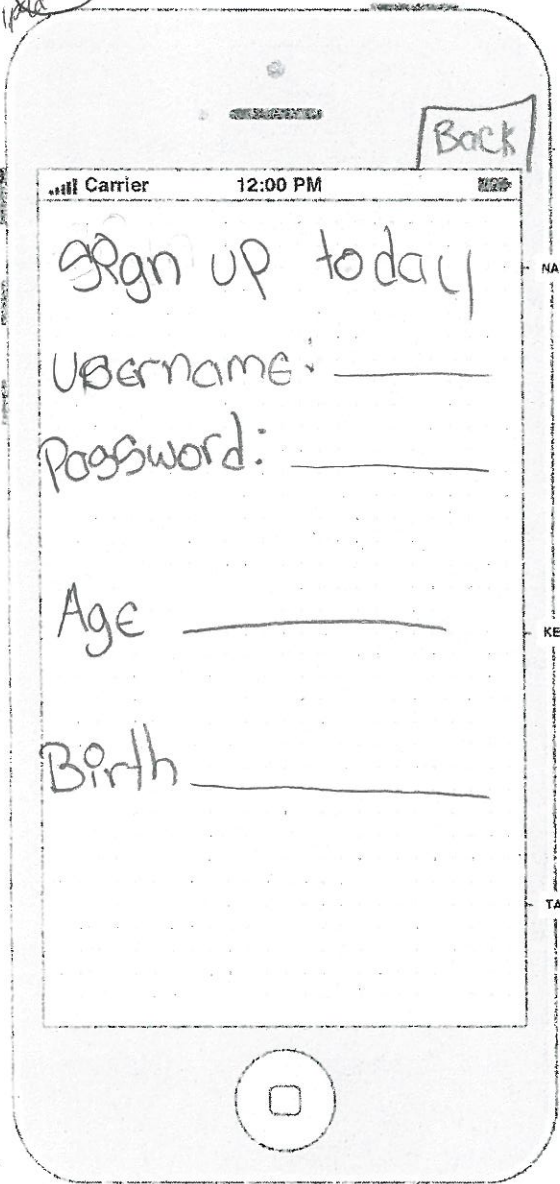 Back
Carrier 12:00 PM
Sign up today
NA
Username:
Password:
Age
KE
Birth
TA